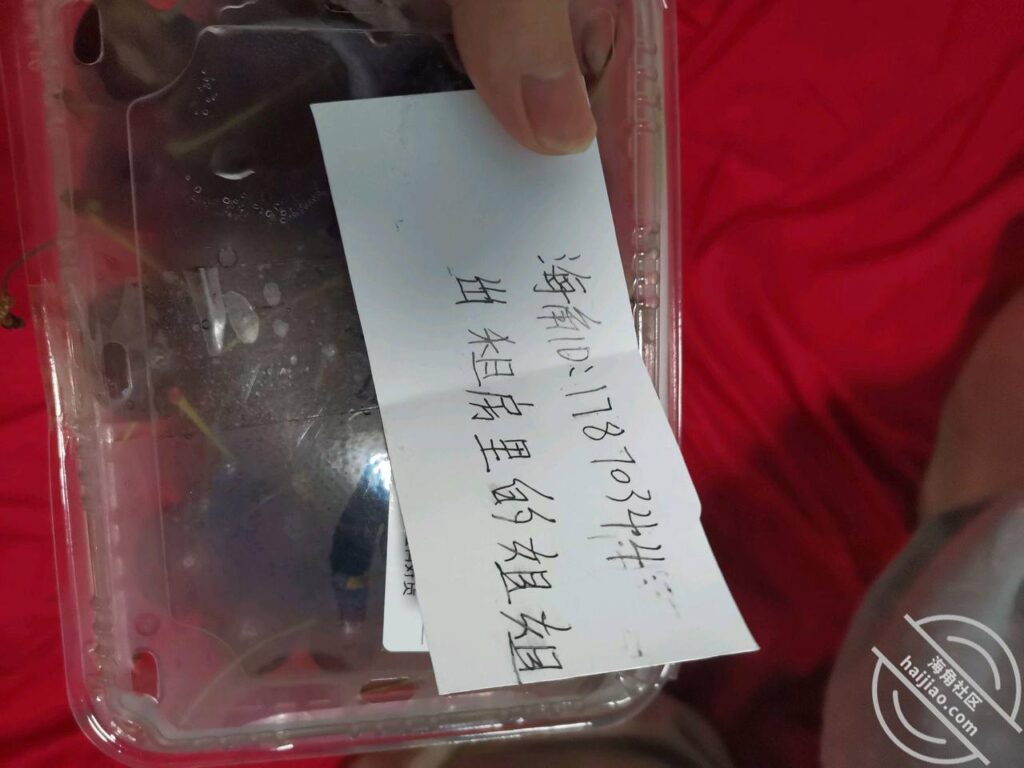 海角ID:17870324
出租房里的姐姐
海角社区
haijiao.com